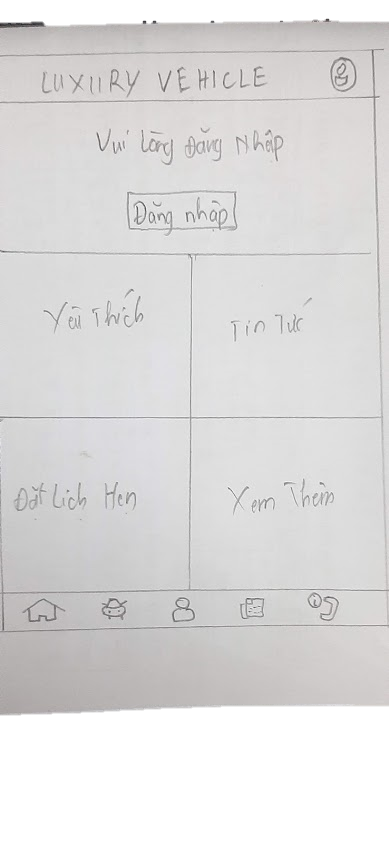 LUXURY VEHICLE
Vui lòng Đăng Nhập
Đăng nhập
Yêu Thích
Tin Tức
Đặt Lịch Hẹn
Xem Thêm